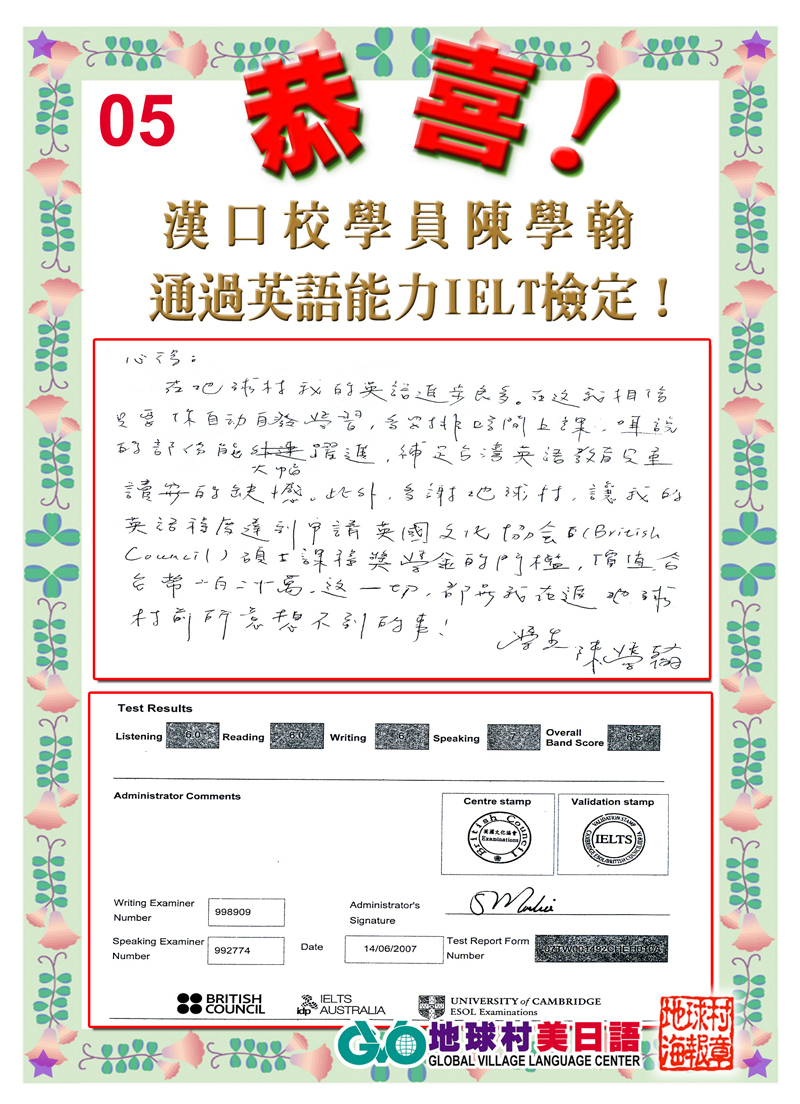 05
恭喜!
漢口校學員陳學翰
通過英語能力IELT檢定！
心得：
在地球村我的英語進步良多。在這我相信
只要保自动自發學習，多安排時間上課，听說
的部份能躍進，補足台灣英語教育只重
大幅
讀的缺憾。此外，多謝地球村，讓我的
英語程度達到申請英國文化協會的(British
Council)碩士課程獎學金的門檻，價值合
台幣一百二十萬，这一切，都是我在進地球
村前所意想不到的事！
學生
陳學翰
Test Results
Listening 6.0 Reading 6.0 Writing 6 Speaking 7 Overall Band Score 6.5
Administrator Comments
Centre stamp
Validation stamp
British Council
英國文化協會
Examinations
VALIDATION STAMP
IELTS
Writing Examiner Number 998909
Administrator's Signature
Speaking Examiner Number 992774
Date 14/06/2007
Test Report Form Number
BRITISH COUNCIL
idp IELTS AUSTRALIA
UNIVERSITY of CAMBRIDGE
ESOL Examinations
GVO 地球村美日語
GLOBAL VILLAGE LANGUAGE CENTER
地球村
海報章